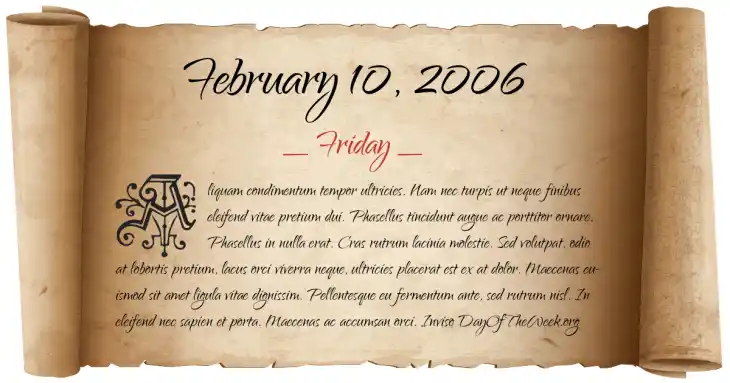 February 10, 2006
_ Friday _
Aliquam condimentum tempor ultricies. Nam nec turpis ut neque finibus
eleifend vitae pretium dui. Phasellus tincidunt augue ac porttitor ornare.
Phasellus in nulla erat. Cras rutrum lacinia molestie. Sed volutpat, odio
at lobortis pretium, lacus orci viverra neque, ultricies placerat est ex at dolor. Maecenas eu-
ismod sit amet ligula vitae dignissim. Pellentesque eu fermentum ante, sed rutrum nisl. In
eleifend nec sapien et porta. Maecenas ac accumsan orci. Inviso DayOfTheWeek.org